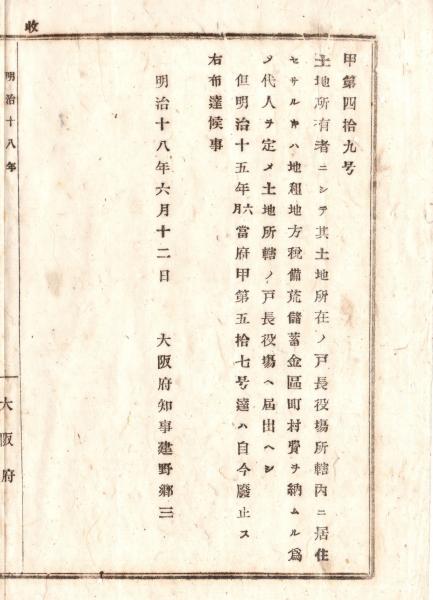 甲第四拾九号
土地所有者ニシテ其土地所在ノ戸長役場所轄内ニ居住
セサルキハ地租地方税備荒儲蓄金區町村費ヲ納ムル爲
メ代人ヲ定メ土地所轄ノ戸長役場ヘ届出ヘシ
但明治十五年六月當府甲第五拾七号達ハ自今廢止ス
右布達候事
明治十八年六月十二日 大阪府知事建野郷三
收
明治十八年
大阪府